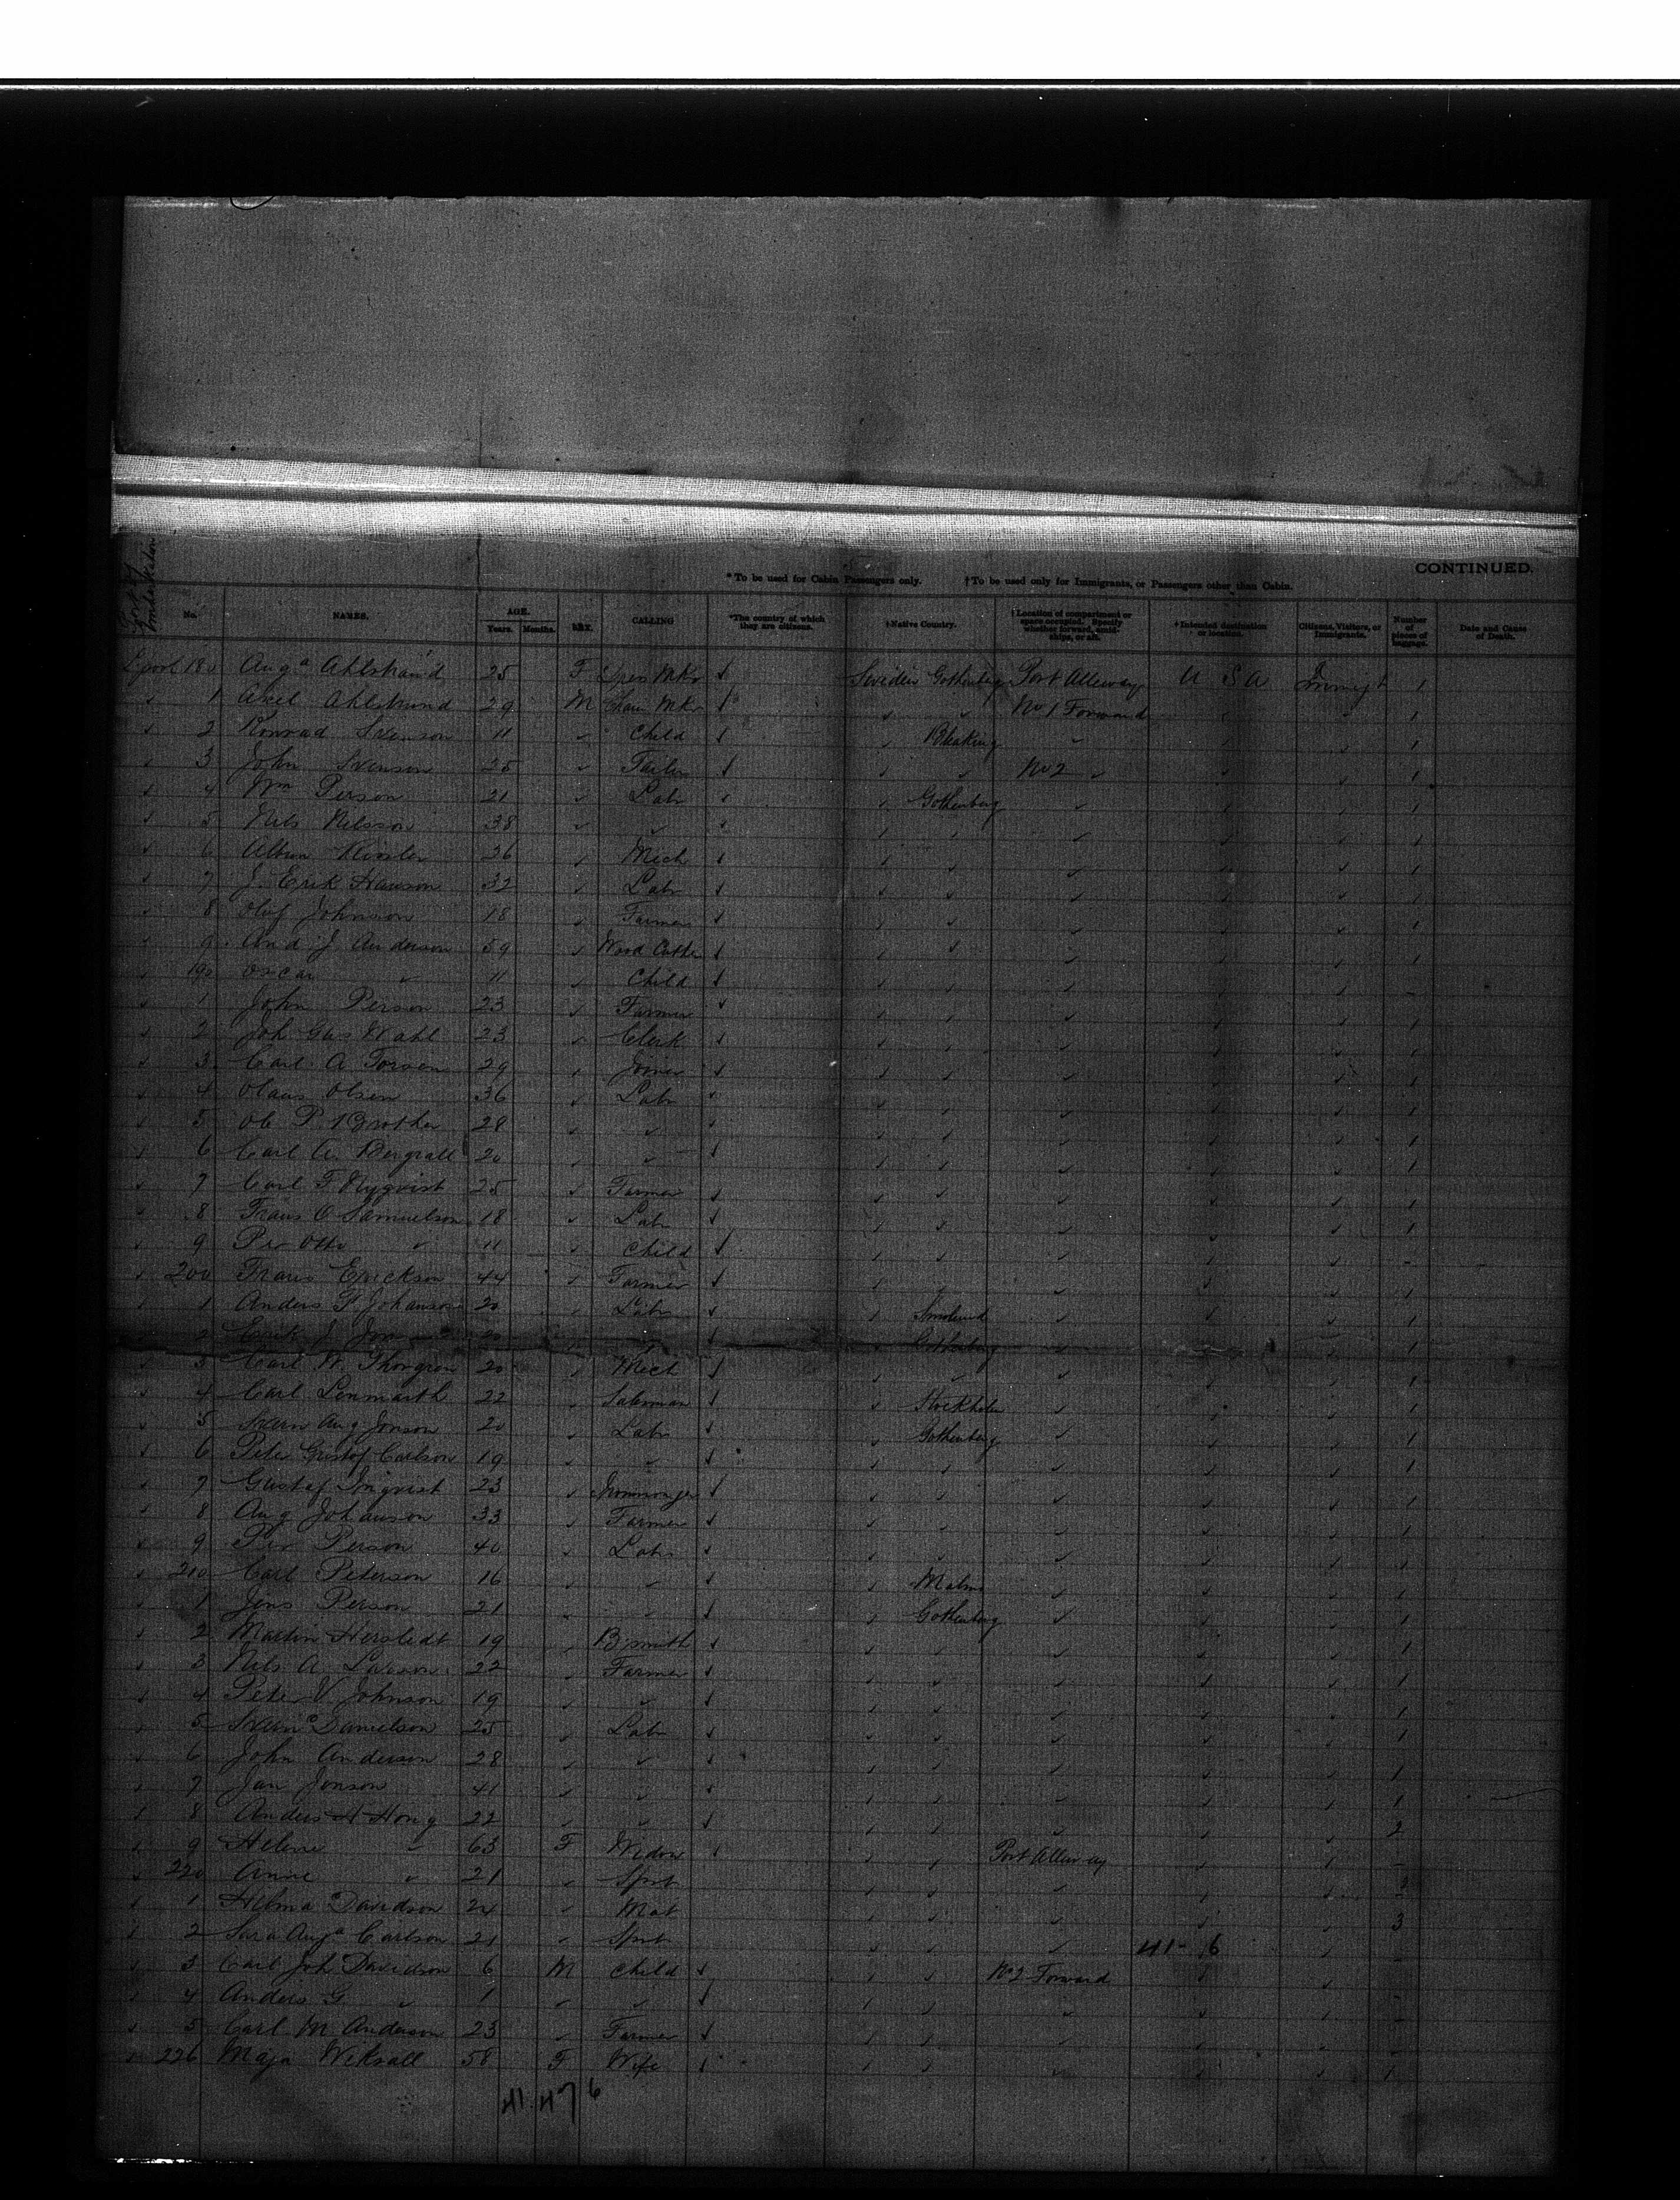 CONTINUED.
* To be used for Cabin Passengers only. † To be used only for Immigrants, or Passengers other than Cabin.
Port of Embarkation No. NAMES. AGE. Years. Months. SEX. CALLING *The country of which they are citizens. †Native Country. †Location of compartment or space occupied. Specify whether forward, amidships, or aft. †Intended destination or location. Citizens, Visitors, or Immigrants. Number of pieces of baggage. Date and Cause of Death.
L'pool 180 Augᵃ Ahlstrand 25 F Dress Mkr ✓ Sweden Gothenburg Port Alleway U S A Immigt 1
✓ 1 Axel Ahlstrand 29 M Chair Mkr ✓ ✓ ✓ No 1 Forward ✓ ✓ 1
✓ 2 Konrad Svenson 11 ✓ Child ✓ ✓ Bleking ✓ ✓ ✓ 1
✓ 3 John Svenson 25 ✓ Tailor ✓ ✓ ✓ No 2 ✓ ✓ ✓ 1
✓ 4 Wm Person 21 ✓ Labr ✓ ✓ Gothenburg ✓ ✓ ✓ 1
✓ 5 Nels Nilsson 38 ✓ ✓ ✓ ✓ ✓ ✓ ✓ ✓ 1
✓ 6 Albin 26 ✓ Mich ✓ ✓ ✓ ✓ ✓ ✓ 1
✓ 7 J. Erik Hanson 32 ✓ Labr ✓ ✓ ✓ ✓ ✓ ✓ 1
✓ 8 Olof Johnson 18 ✓ Farmer ✓ ✓ ✓ ✓ ✓ ✓ 1
✓ 9 And J. Anderson 59 ✓ Wood Cutter ✓ ✓ ✓ ✓ ✓ ✓ 1
✓ 190 Oscar ✓ 11 ✓ Child ✓ ✓ ✓ ✓ ✓ ✓ -
✓ 1 John Person 23 ✓ Farmer ✓ ✓ ✓ ✓ ✓ ✓ 1
✓ 2 Joh Gus Wahl 23 ✓ Clerk ✓ ✓ ✓ ✓ ✓ ✓ 1
✓ 3 Carl A Torsen 29 ✓ Joiner ✓ ✓ ✓ ✓ ✓ ✓ 1
✓ 4 Olaus Olsen 36 ✓ Labr ✓ ✓ ✓ ✓ ✓ ✓ 1
✓ 5 Ol P. Brother 28 ✓ ✓ ✓ ✓ ✓ ✓ ✓ ✓ 1
✓ 6 Carl A. 20 ✓ ✓ ✓ ✓ ✓ ✓ ✓ ✓ 1
✓ 7 Carl F Nyqvist 25 ✓ Farmer ✓ ✓ ✓ ✓ ✓ ✓ 1
✓ 8 Frans O Samuelson 18 ✓ Labr ✓ ✓ ✓ ✓ ✓ ✓ 1
✓ 9 Per Otto ✓ 11 ✓ Child ✓ ✓ ✓ ✓ ✓ ✓ -
✓ 200 Frans Erickson 44 ✓ Farmer ✓ ✓ ✓ ✓ ✓ ✓ 1
✓ 1 Anders P. Johanson 20 ✓ Labr ✓ ✓ Smoland ✓ ✓ ✓ 1
✓ 2 Erik J 20 ✓ ✓ ✓ ✓ Gothenburg ✓ ✓ ✓ 1
✓ 3 Carl W. Thorgren 20 ✓ Mech ✓ ✓ ✓ ✓ ✓ ✓ 1
✓ 4 Carl Lenmarth 22 ✓ Salesman ✓ ✓ Stockholm ✓ ✓ ✓ 1
✓ 5 Sven Aug Jonson 20 ✓ Labr ✓ ✓ Gothenburg ✓ ✓ ✓ 1
✓ 6 Peter Gustof Carlson 19 ✓ ✓ ✓ ✓ ✓ ✓ ✓ ✓ 1
✓ 7 Gustaf 23 ✓ Ironmonger ✓ ✓ ✓ ✓ ✓ ✓ 1
✓ 8 Aug Johanson 33 ✓ Farmer ✓ ✓ ✓ ✓ ✓ ✓ 1
✓ 9 Per Person 40 ✓ Labr ✓ ✓ ✓ ✓ ✓ ✓ 1
✓ 210 Carl Peterson 16 ✓ ✓ ✓ ✓ Malmo ✓ ✓ ✓ 1
✓ 1 Jens Person 21 ✓ ✓ ✓ ✓ Gothenburg ✓ ✓ ✓ 1
✓ 2 Martin Herstedt 19 ✓ B'smith ✓ ✓ ✓ ✓ ✓ ✓ 1
✓ 3 Nils A. Larson 22 ✓ Farmer ✓ ✓ ✓ ✓ ✓ ✓ 1
✓ 4 Peter V Johnson 19 ✓ ✓ ✓ ✓ ✓ ✓ ✓ ✓ 1
✓ 5 Sven Danielson 25 ✓ Labr ✓ ✓ ✓ ✓ ✓ ✓ 1
✓ 6 John Anderson 28 ✓ ✓ ✓ ✓ ✓ ✓ ✓ ✓ 1
✓ 7 Jan Jonson 41 ✓ ✓ ✓ ✓ ✓ ✓ ✓ ✓ 1
✓ 8 Anders H Hong 22 ✓ ✓ ✓ ✓ ✓ ✓ ✓ ✓ 2
✓ 9 Helene ✓ 63 F Widow ✓ ✓ ✓ Port Alleway ✓ ✓ -
✓ 220 Anne ✓ 21 ✓ Spst ✓ ✓ ✓ ✓ ✓
✓ 1 Hilma Davidson 24 ✓ Mat ✓ ✓ ✓ ✓ ✓ 3
✓ 2 Sara Augᵃ Carlson 21 ✓ Spst ✓ ✓ ✓ 41- 6 ✓ -
✓ 3 Carl Joh Davidson 6 M Child ✓ ✓ ✓ No 2 Forward ✓ ✓ -
✓ 4 Anders G. ✓ 1 ✓ ✓ ✓ ✓ ✓ ✓ ✓ ✓ -
✓ 5 Carl M Anderson 23 ✓ Farmer ✓ ✓ ✓ ✓ ✓ ✓ 1
✓ 226 Maja Weksall 58 F Wife ✓ ✓ ✓ ✓ ✓ ✓ 1
41 47 6